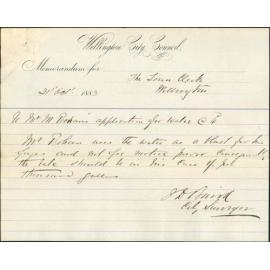 Wellington City Council.
Memorandum for
The Town Clerk
21st Oct. 1883
Wellington
Re Mr M Bohan's application for water
Mr Bohan uses the water as a blast for his
and not for motive power consequently
the rate should be in his case
thousand gallons
J D Baird
City Surveyor